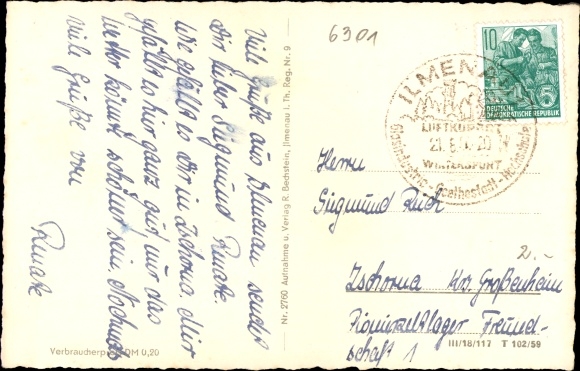 6301
Viele Grüße aus Ilmenau sendet
Dir lieber Siegmund Renate.
Wie gefällt es Dir in Zschorna. Mir
gefällt es hier ganz gut nur das
Wetter könnte schöner sein. Nochmals
viele Grüße von
Renate
Verbraucherpreis DM 0,20
Nr. 2760 Aufnahme u. Verlag R. Bechstein, Ilmenau i. Th. Reg. Nr. 9
10
DEUTSCHE
DEMOKRATISCHE REPUBLIK
5
ILMENAU
LUFTKURORT
WINTERSPORT
Goethestadt
Herrn
Siegmund
Zschorna Krs. Großenhein
Pionierzeltlager Freund-
schaft 1
2.-
III/18/117 T 102/59